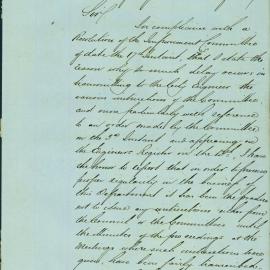 Sir,
In compliance with a
Resolution of the Improvement Committee
of date the 17th Instant, that I state the
reason why so much delay occurs in
transmitting to the City Engineer the
various instructions of the Committee,
and more particularly with reference
to an order made by the Committee
on the 3rd Instant and appearing in
the Engineers Register on the 15th, I have
the honor to report that in order
proper regularity in the business of
this Department it has been the practice
not to issue any instructions
the Council or the Committees until
the Minutes of the proceedings at the
Meetings where such instructions were
given, have been fairly transcribed